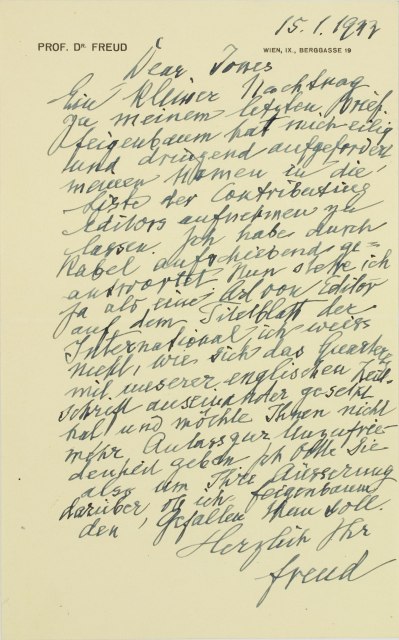 15.1.1933
PROF. DR. FREUD
WIEN, IX., BERGGASSE 19
Dear Jones
Ein kleiner Nachtrag
zu meinem letzten Brief.
Feigenbaum hat mich eilig
und dringend aufgefordert
meinen Namen in die
Liste der Contributing
Editors aufnehmen zu
lassen. Ich habe durch
Kabel aufschiebend ge=
antwortet. Nun stehe ich
ja als eine Ad oor Editor
auf dem Titelblatt der
International, ich weiss
nicht, wie sich das Quarterly
mit unserer englischen Zeit-
schrift auseinander gesetzt
hat und möchte Ihnen nicht
mehr Anlass zur Unzufrie
denheit geben. Ich bitte Sie
also um Ihre Äusserung
darüber ob ich Feigenbaum
den Gefallen thun soll.
Herzlich Ihr
Freud